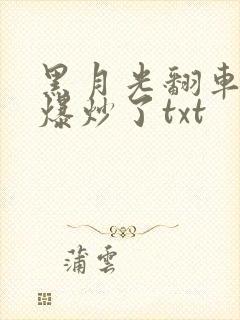 黑月光翻車
爆炒了txt
蒲雲